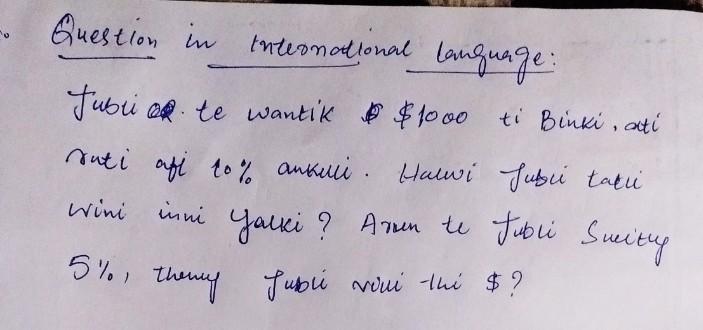 Question in International language:
Jubli te wantik $1000 ti Binki, ati
ruti afi 10% ankuli. Halwi Jubli tatii
wini inni Yalki? Arun te Jubli Sweitzy
5%, themy Jubli vini thi $?